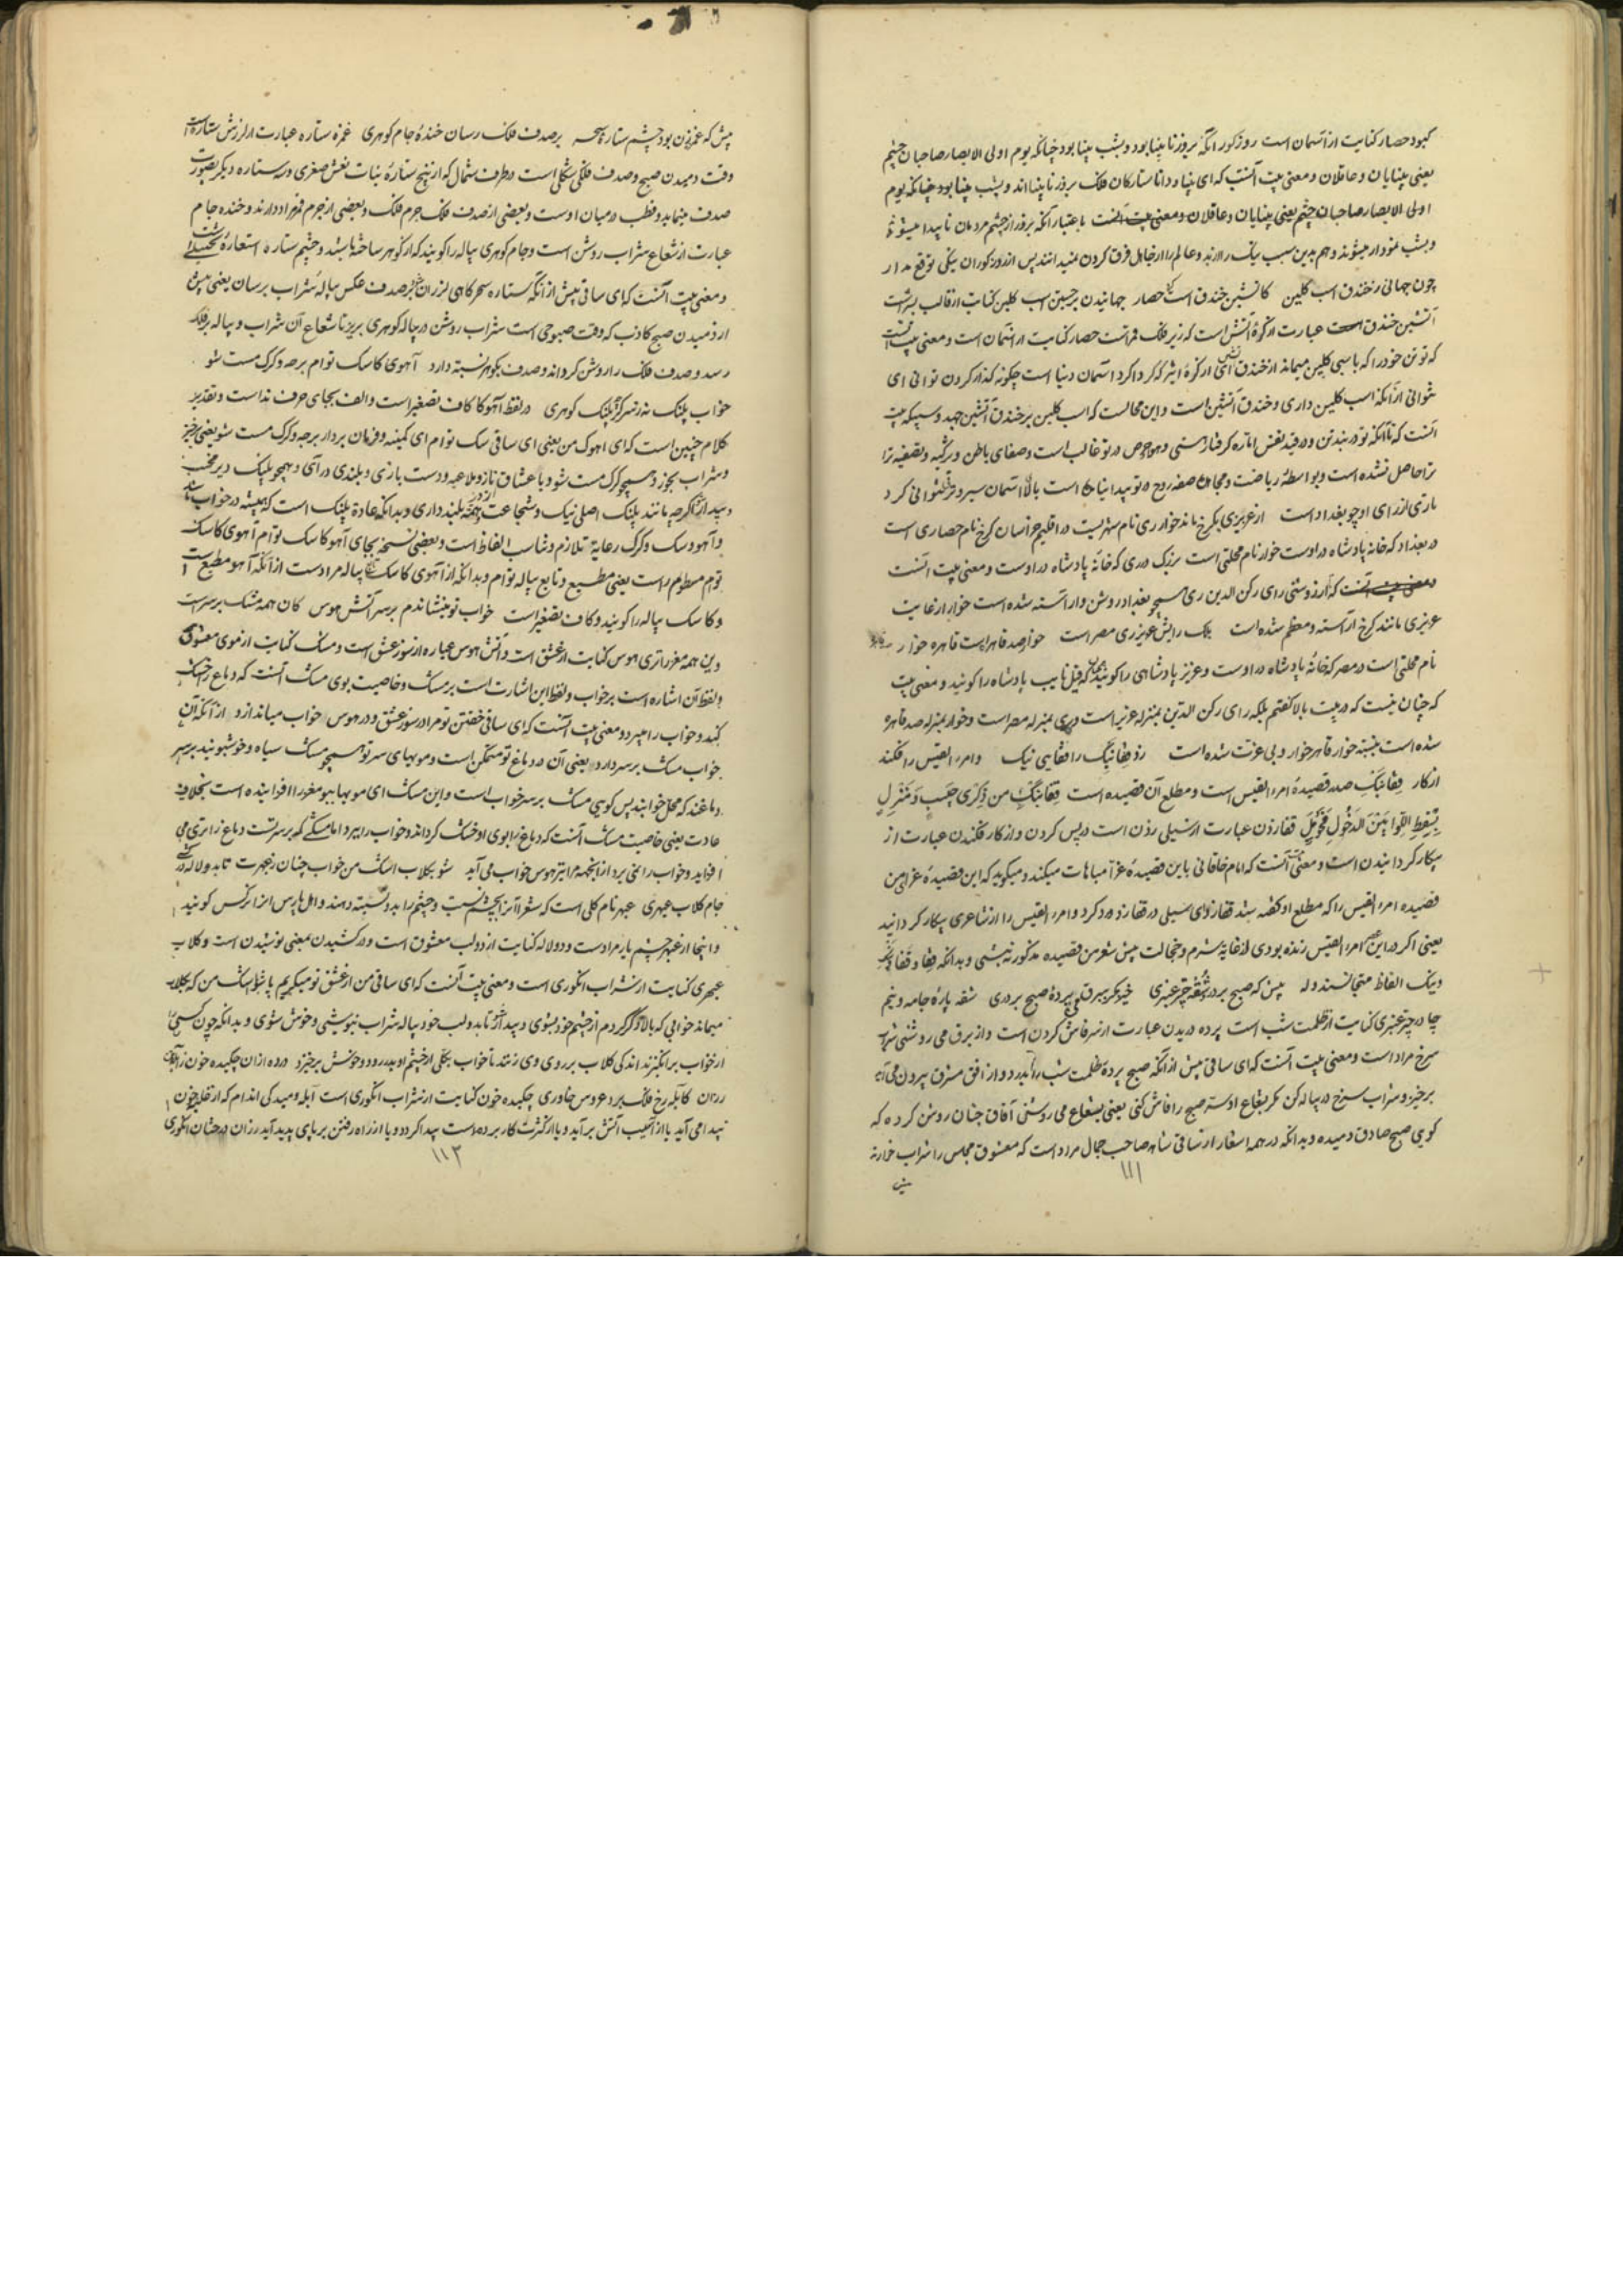 کبود حصار کنایت از آسمان است روزکور آنکه بروز نابینا بود و بشب بینا بود چنانکه یوم اولی الابصار صاحبان چشم
یعنی بینایان و عاقلان و معنی بیت آنست که ای بینا و دانا ستارکان فلک بروز نابینا اند و بشب بینا بود چنانکه یوم
اولی الابصار صاحبان چشم یعنی بینایان و عاقلان و معنی بیت آنست باعتبار آنکه بروز از چشم مردمان ناپیدا میشوند
و بشب نمودار میشوند و هم بدین سبب نیک را از بد و عالم را از جاهل فرق کردن نمیدانند پس از روزکوران نیکی توقع مدار
چون جهانی ز خندق اسب کلین کاتشین خندق است حصار جهانیدن برجستن اسب کلین کنایت از قالب بشر است
آتشین خندق عبارت از کرهٔ آتش است که زیر فلک قمر است حصار کنایت از آسمان است و معنی بیت آنست
که تو تن خود را که باسپی کلین میماند از خندق آتش از کرهٔ اثیر که کرداکرد آسمان دنیا است چکونه کذار کردن توانی ای
نتوانی از آنکه اسب کلین داری و خندق آتشین است و این محالست که اسب کلین بر خندق آتشین جهد
آنست که تا آنکه تو در بند تن و در قید نفس اماره کرفتار هستی و هوا و حرص در تو غالب است و صفای باطن و تزکیه و تصفیه ترا
ترا حاصل نشده است و بواسطهٔ ریاضت روح در تو پیدا نیامده است بالای آسمان سیر نتوانی کرد
در بغداد که خانه پادشاه در اوست خوار نام محلتی است بزرک در ری که خانهٔ پادشاه در اوست و معنی بیت آنست
که از روشنی رای رکن الدین ری همچو بغداد روشن و آراسته شده است خوار از غایت
عزیزی مانند کرخ آراسته و معظم شده است بلک رایش عزیز ری مصر است خوار صد قاهر است قاهره خوار
نام محلتی است در مصر که خانهٔ پادشاه در اوست و عزیز پادشاهی را کویند نایب پادشاه را کویند و معنی بیت
که چنان نیست که در بیت بالا کفتم بلکه رای رکن الدین بمنزله عزیز است و ری بمنزله مصر است و خوار بمنزله صد قاهره
شده است قاهر خوار و بی عزت شده است زد قفا نبک را قفایی نیک و امرء القیس را فکند
از کار قفا نبک صدر قصیدهٔ امرء القیس است و مطلع آن قصیده است قِفَا نَبْكِ مِن ذِكْرَى حَبِيبٍ وَمَنْزِلٍ
بِسِقْطِ اللِّوَا بَيْنَ الدَّخُولِ فَحَوْمَلِ قفا زدن عبارت از سیلی زدن است در پس کردن و از کار فکندن عبارت از
بیکار کردانیدن است و معنی آنست که امام خاقانی باین قصیدهٔ غرا مباهات میکند و میکوید که این قصیدهٔ غرای من
قصیده امرء القیس را که مطلع او کفته شد قفا زد ای سیلی در قفا زد و رد کرد و امرء القیس را از شاعری بیکار کردانید
یعنی اکر در این امرء القیس زنده بودی از غایة شرم و خجالت پیش شعر من قصیده مذکور نه بشتی و بدانکه قفا و قفا
و نیک الفاظ متجانسند وله پیش که صبح بردرد شقهٔ چتر عنبری خیز مکر ببرق می پردهٔ صبح بردری شقه پارهٔ جامه و نیم
چادر چتر عنبری کنایت از ظلمت شب است پرده دریدن عبارت از سر فاش کردن است و از برق می روشنی شراب
سرخ مراد است و معنی بیت آنست که ای ساقی پیش از آنکه صبح پردهٔ ظلمت شب را بدرد و از افق مشرق بیرون می آید
برخیز و شراب سرخ در پیاله کن مکر بشعاع او سر صبح را فاش کنی یعنی بشعاع می روشنی آفاق چنان روشن کرده که
کویی صبح صادق دمیده و بدانکه در همه اسفار از ساقی شاهد صاحب جمال مراد است که معشوق مجلس را شراب
۱۱۱
پیش که غمزه زن بود چشم ستارهٔ سحر بر صدف فلک رسان خندهٔ جام کوهری غمزه ستاره عبارت از لرزش ستاره است
وقت دمیدن صبح و صدف فلکی شکلی است در طرف شمال که از پنج ستارهٔ بنات نعش صغری و سه ستاره دیکر بصورت
صدف مینماید و قطب در میان اوست و بعضی از صدف فلک جرم فلک و بعضی از جرم قمر مراد دارند و خنده جام
عبارت از شعاع شراب روشن است و جام کوهری پیاله را کویند که از کوهر ساخته باشند و چشم ستاره استعارهٔ
و معنی بیت آنست که ای ساقی پیش از آنکه ستاره سحرکاهی لرزان بر صدف عکس پیالهٔ شراب برسان یعنی پیش
از دمیدن صبح کاذب که وقت صبوحی است شراب روشن در پیاله کوهری بریز تا شعاع آن شراب و پیاله بر فلک
رسد و صدف فلک را روشن کرداند و صدف بکوهر نسبته دارد آهوی کاسک توام برجه و کرک مست شو
خواب پلنک نه ز سر کرچه پلنک کوهری در لفظ آهوکا کاف تصغیر است و الف بجای حرف نداست و تقدیر
کلام چنین است که ای آهوک من یعنی ای ساقی سک توام ای کمینه و فرمان بردار برجه و کرک مست شو یعنی برخیز
و شراب بخور و همچو کرک مست شو و با عشاق ناز و ملاعبه و دست بازی و بلندی در آی و همچو پلنک
و بیدار شو اکرچه مانند پلنک اصلی نیک و شجاعت و همت بلند داری و بدانکه عادة پلنک است که همیشه در خواب باشد
و آهو و سک و کرک رعایة تلازم و تناسب الفاظ است و بعضی نسخه بجای آهوکا سک توام آهوی کاسک
توام مسطور است یعنی مطیع و تابع پیاله توام و بدانکه از آهوی کاسک پیاله مراد است از آنکه آهو مطیع است
و کاسک پیاله را کویند و کاف تصغیر است خواب تو مینشاندم بر سر آتش هوس کان همه مشک بر سر است
وین همه مغز را تری هوس کنایت از عشق است و آتش هوس عباره از سوز عشق است و مشک کنایت از موی معشوق
و لفظ آن اشاره است بر خواب و لفظ این اشارت است بر مشک و خاصیت بوی مشک آنست که دماغ را خشک
کند و خواب را میبرد و معنی بیت آنست که ای ساقی خفتن تو مرا در سوز عشق و در هوس خواب میاندازد از آنکه آن
خواب مشک بر سر دارد یعنی آن در دماغ تو متمکن است و مویهای سر تو همچو مشک سیاه و خوشبویند بر سر
دماغند که محل خوابند پس کویی مشک بر سر خواب است و این مشک ای مویها ببو مغز را افزاینده است بخلاف
عادت یعنی خاصیت مشک آنست که دماغ را ببوی او خشک کرداند و خواب را ببرد اما مشکی که بر سر تست دماغ را تری می
افزاید و خواب را نمی برد از اینجهة مرا بیتر هوس خواب می آید شو بکلاب اشک من خواب چنان ز عبهرت تا بدو لاله
جام کلاب عبهری عبهر نام کلی است که شعرا آنرا بچشم نسبت و چشم را بدو نسبته دهند و اهل پارس آنرا نرکس کویند
و اینجا از عبهر چشم یار مراد است و دو لاله کنایت از دو لب معشوق است و درکشیدن بمعنی نوشیدن است و کلاب
عبهری کنایت از شراب انکوری است و معنی بیت آنست که ای ساقی من از عشق تو میکریم با شو اشک من که بکلاب
میماند خوابی که بالا ذکر کردم از چشم خود بشوی و بیدار شو تا بدو لب خود پیاله شراب بنوشی و خوش شوی و بدانکه چون کسی را
از خواب برانکیزند اندکی کلاب بر روی وی زنند تا خواب بکلی از چشم او بدر رود و خوش برخیزد درده از آن چکیده خون ز آبلهٔ تن
رزان کابله رخ فلک برد عروس خاوری چکیده خون کنایت از شراب انکوری است آبله دمیدکی اندام که از قلة خون
پیدا می آید یا از آسیب آتش برآید و یا از کثرت کار بر دست پیدا کردد و یا از راه رفتن بر پای پدید آید رزان درختان انکوری
۱۱۲